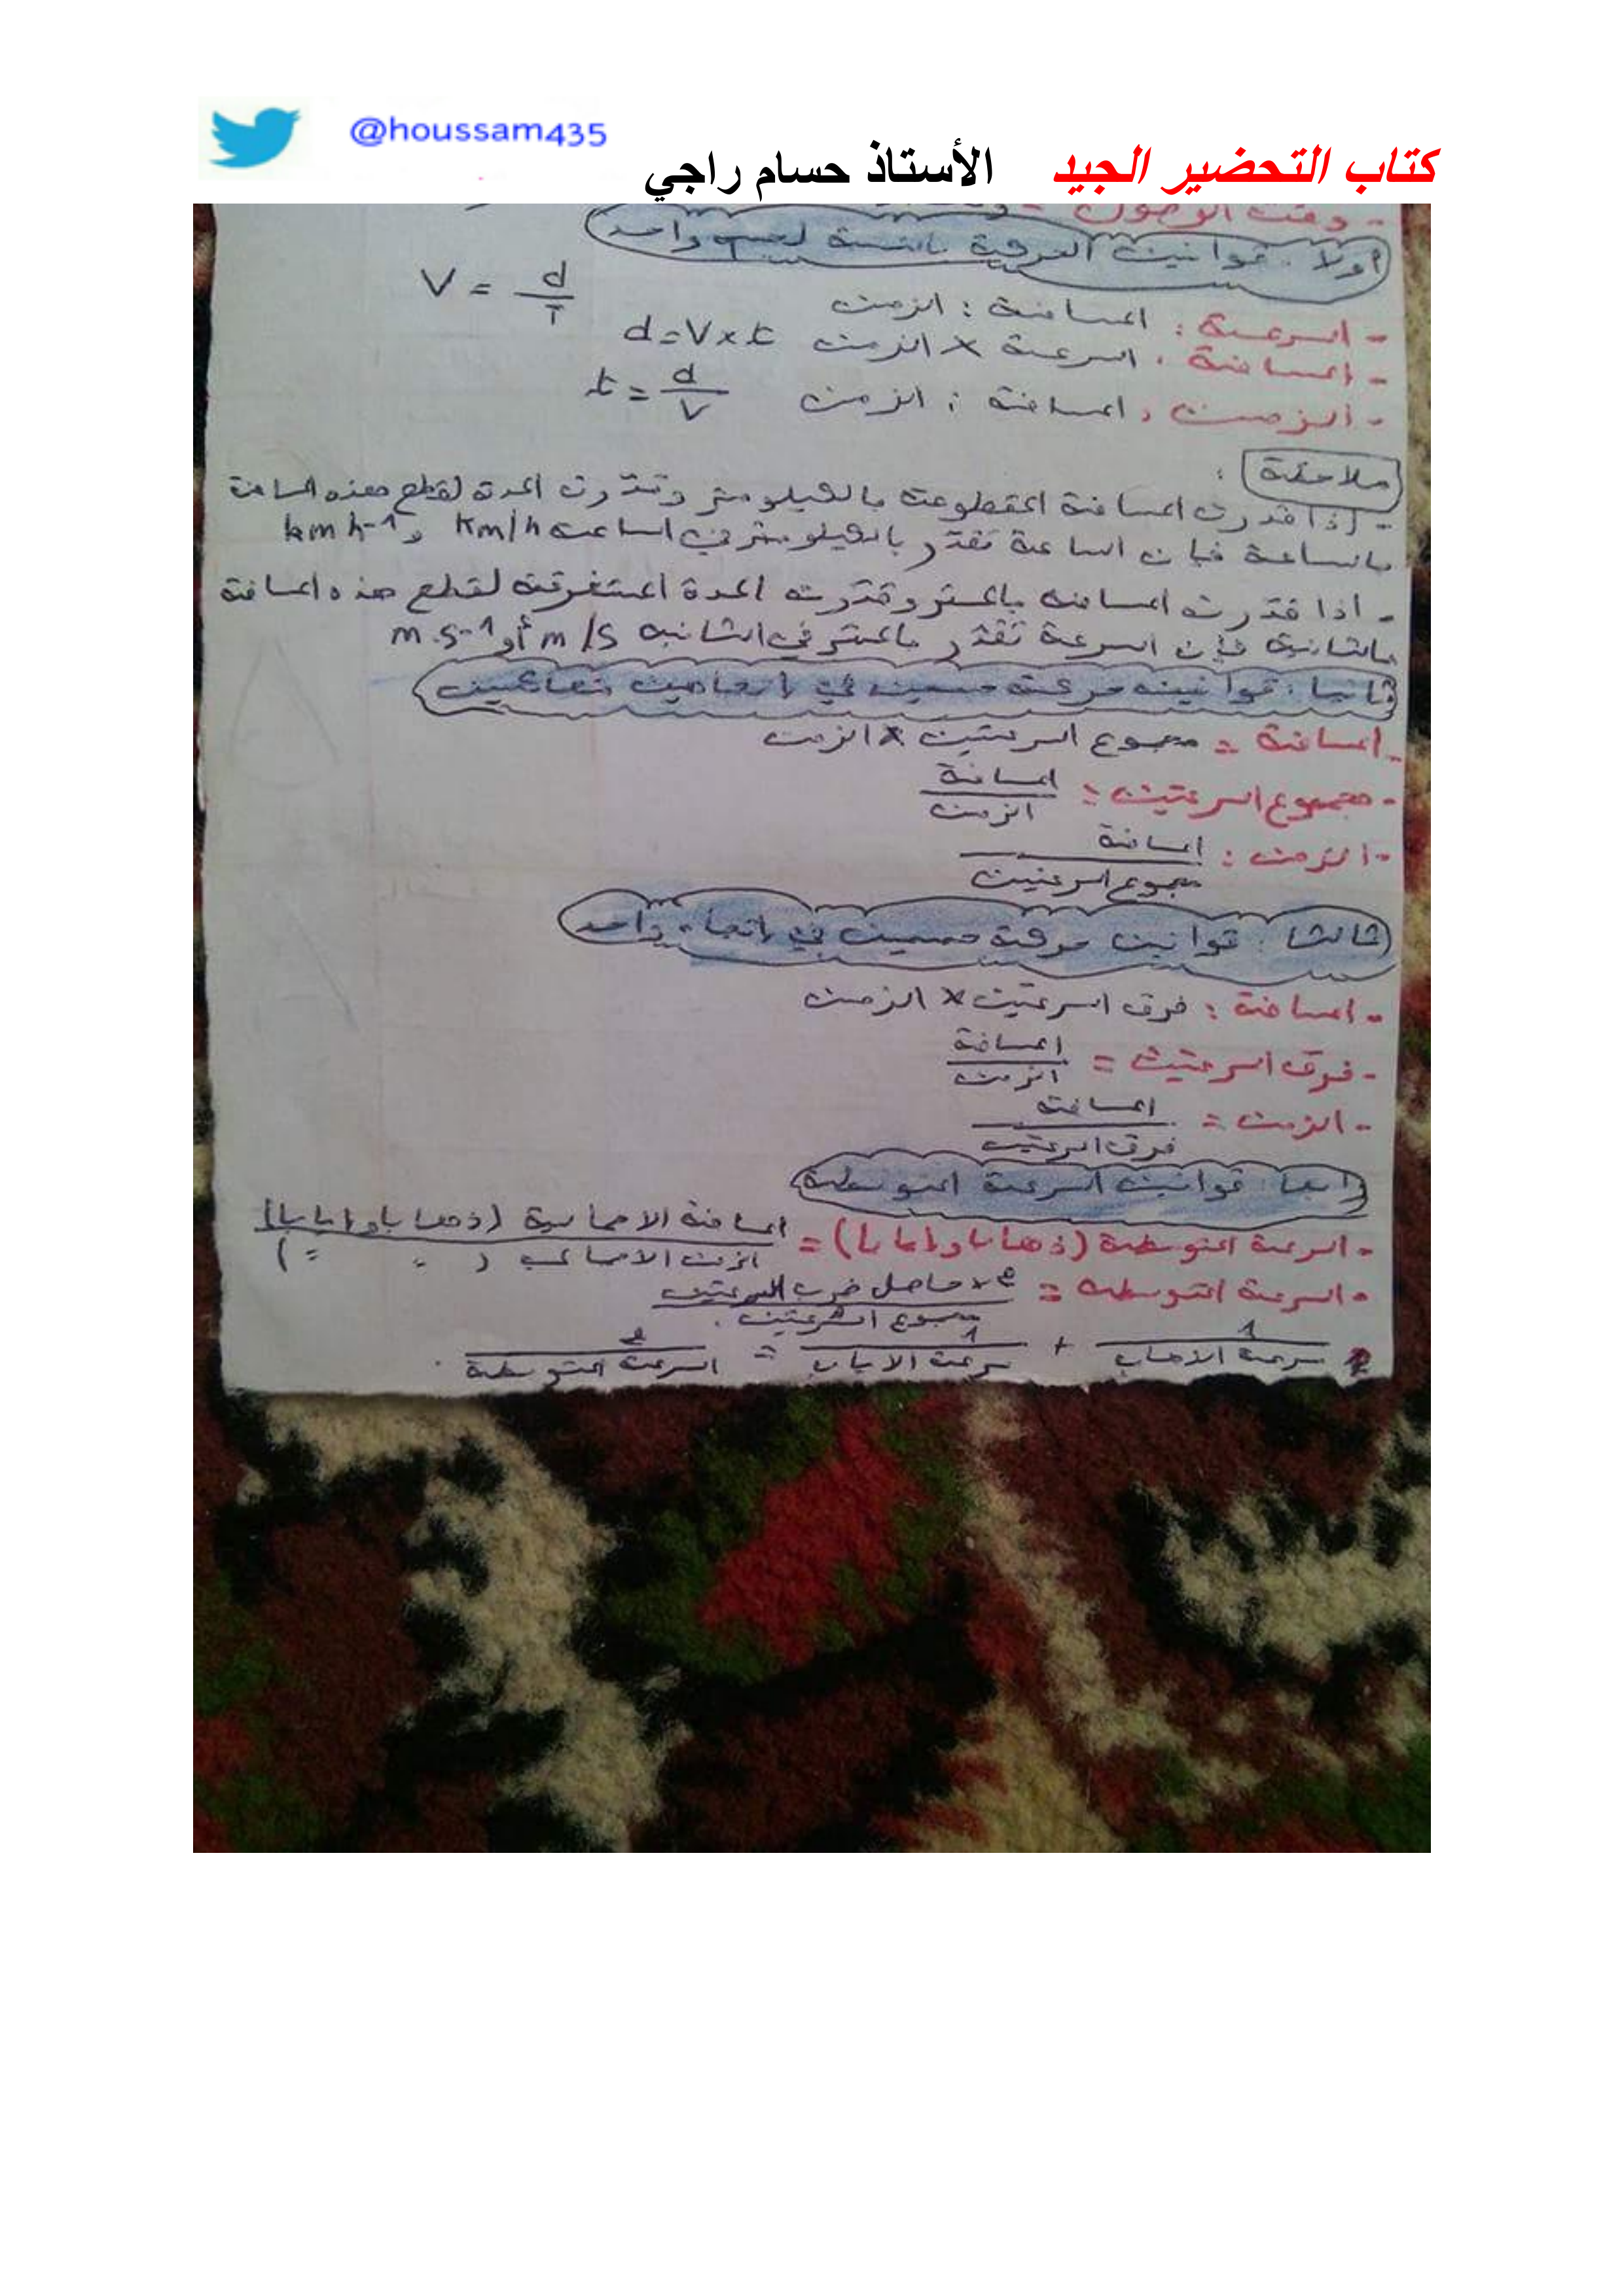 @houssam435
كتاب التحضير الجيد الأستاذ حسام راجي
- وقت الوصول =
أولا : قوانين الحركة بالنسبة لجسم واحد
- السرعة : المسافة : الزمن V = d/T
- المسافة : السرعة × الزمن d = V × t
- الزمن : المسافة : الزمن t = d/V
ملاحظة :
- إذا قدرت المسافة المقطوعة بالكيلومتر وقدّرت المدة لقطع هذه المسافة
بالساعة فإن الساعة تقدّر بالكيلومتر في الساعة Km/h و km h-1
- اذا قدرت المسافة بالمتر وقدّرت المدة المستغرقة لقطع هذه المسافة
بالثانية فإن السرعة تقدّر بالمتر في الثانية m/s أو m.s-1
ثانيا : قوانين حركة جسمين في إتجاهين متعاكسين
- المسافة = مجموع السرعتين × الزمن
- مجموع السرعتين = المسافة / الزمن
- الزمن : المسافة / مجموع السرعتين
ثالثا : قوانين حركة جسمين في إتجاه واحد
- المسافة : فرق السرعتين × الزمن
- فرق السرعتين = المسافة / الزمن
- الزمن = المسافة / فرق السرعتين
رابعا : قوانين السرعة المتوسطة
- السرعة المتوسطة (ذهابا وإيابا) = المسافة الاجمالية (ذهابا وإيابا) / الزمن الاجمالي ( = = )
- السرعة المتوسطة = 2 × حاصل ضرب السرعتين / مجموع السرعتين .
1 / سرعة الذهاب + 1 / سرعة الاياب = 2 / السرعة المتوسطة .